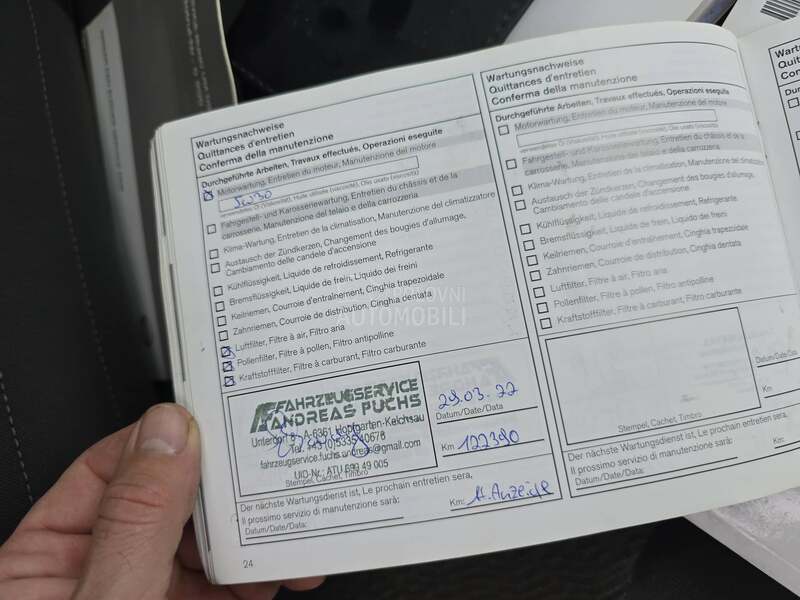 Wartungsnachweise
Quittances d'entretien
Conferma della manutenzione
Durchgeführte Arbeiten, Travaux effectués, Operazioni eseguite
Motorwartung, Entretien du moteur, Manutenzione del motore
5W30
verwendetes Öl (Viskosität), Huile utilisée (viscosité), Olio usato (viscosità)
Fahrgestell- und Karosseriewartung, Entretien du châssis et de la
carrosserie, Manutenzione del telaio e della carrozzeria
Klima-Wartung, Entretien de la climatisation, Manutenzione del climatizzatore
Austausch der Zündkerzen, Changement des bougies d'allumage,
Cambiamento delle candele d'accensione
Kühlflüssigkeit, Liquide de refroidissement, Refrigerante
Bremsflüssigkeit, Liquide de frein, Liquido dei freini
Keilriemen, Courroie d'entraînement, Cinghia trapezoidale
Zahnriemen, Courroie de distribution, Cinghia dentata
Luftfilter, Filtre à air, Filtro aria
Pollenfilter, Filtre à pollen, Filtro antipolline
Kraftstofffilter, Filtre à carburant, Filtro carburante
FAHRZEUGSERVICE
ANDREAS FUCHS
A-6361 Hopfgarten-Kelchsau
fahrzeugservice.fuchs.andreas@gmail.com
UID-Nr.: ATU 699 49 005
Stempel, Cachet, Timbro
29.03.22
Datum/Date/Data
Km 122390
Der nächste Wartungsdienst ist, Le prochain entretien sera,
Il prossimo servizio di manutenzione sarà:
Datum/Date/Data:
Km: lt. Anzeige
24
Wartungsnachweise
Quittances d'entretien
Conferma della manutenzione
Durchgeführte Arbeiten, Travaux effectués, Operazioni eseguite
Motorwartung, Entretien du moteur, Manutenzione del motore
verwendetes Öl (Viskosität), Huile utilisée (viscosité), Olio usato (viscosità)
Fahrgestell- und Karosseriewartung, Entretien du châssis et de la
carrosserie, Manutenzione del telaio e della carrozzeria
Klima-Wartung, Entretien de la climatisation, Manutenzione del climatizzatore
Austausch der Zündkerzen, Changement des bougies d'allumage,
Cambiamento delle candele d'accensione
Kühlflüssigkeit, Liquide de refroidissement, Refrigerante
Bremsflüssigkeit, Liquide de frein, Liquido dei freini
Keilriemen, Courroie d'entraînement, Cinghia trapezoidale
Zahnriemen, Courroie de distribution, Cinghia dentata
Luftfilter, Filtre à air, Filtro aria
Pollenfilter, Filtre à pollen, Filtro antipolline
Kraftstofffilter, Filtre à carburant, Filtro carburante
Stempel, Cachet, Timbro
Datum/Date/Data
Km
Der nächste Wartungsdienst ist, Le prochain entretien sera,
Il prossimo servizio di manutenzione sarà:
Datum/Date/Data:
Km:
AUTOMOBILI